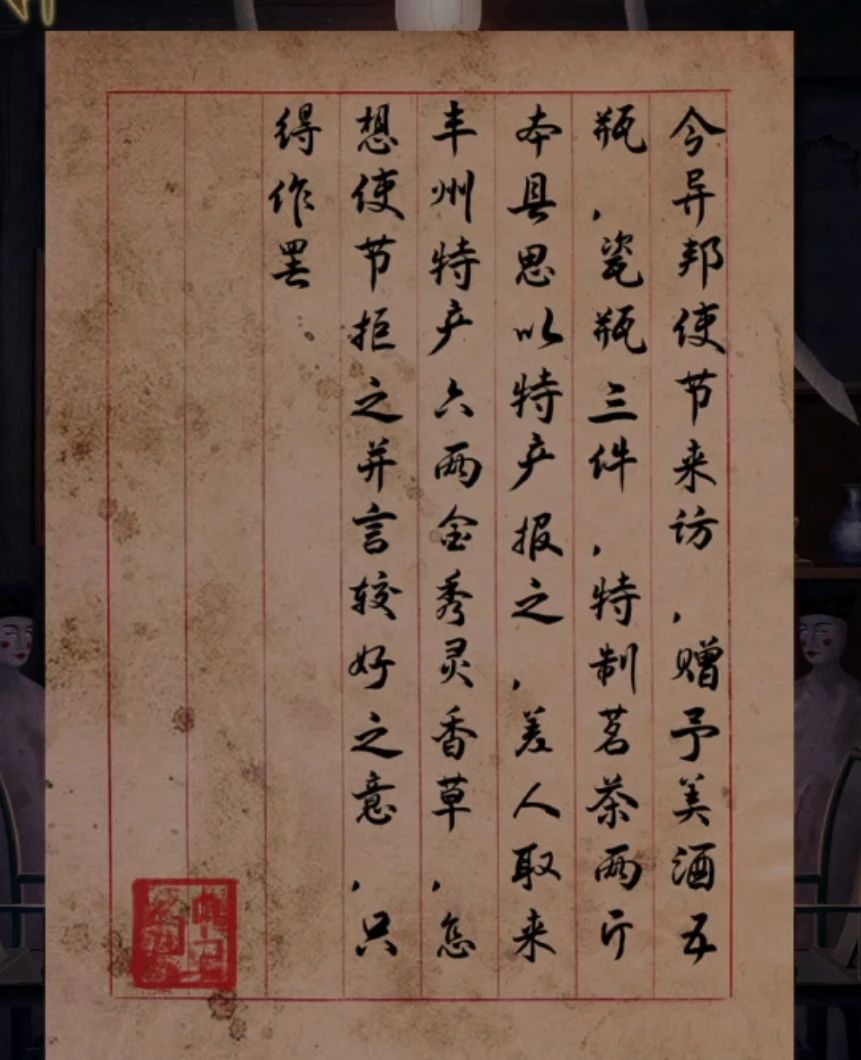 今异邦使节来访，赠予美酒五
瓶，瓷瓶三件，特制茗茶两斤
本县思以特产报之，差人取来
丰州特产六两金秀灵香草，怎
想使节拒之并言较好之意，只
得作罢。